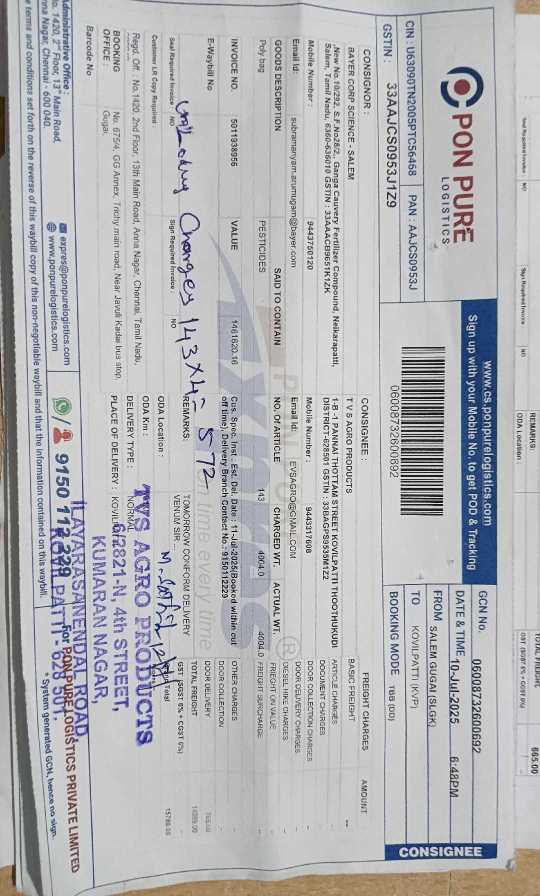 PON PURE
LOGISTICS
www.cs.ponpurelogistics.com
Sign up with your Mobile No. to get POD & Tracking
CIN : U63090TN2005PTC56468 PAN : AAJCS0953J
GSTIN : 33AAJCS0953J1Z9
06008732600692
GCN No. 06008732600692
DATE & TIME 10-Jul-2025 6:48PM
FROM SALEM GUGAI (SLGK)
TO KOVILPATTI (KVP)
BOOKING MODE TBB (DD)
CONSIGNEE
CONSIGNOR :
BAYER CORP SCIENCE - SALEM
New No.10/292, S.F.No28/2, Ganga Cauvery Fertilizer Compound, Neikarapatti,
Mobile Number : 9443750120
Email Id: subramanyam.arumugam@bayer.com
CONSIGNEE :
T V S AGRO PRODUCTS
1-B-1 PANNAI THOTTAM STREET KOVILPATTI THOOTHUKUDI
Mobile Number : 9443317608
Email Id: EVSAGRO@GMAIL.COM
FREIGHT CHARGES AMOUNT
BASIC FREIGHT --
ARTICLE CHARGES
DOCUMENT CHARGES
DOOR COLLECTION CHARGES
DOOR DELIVERY CHARGES
DIESEL HIKE CHARGES
FREIGHT ON VALUE
FREIGHT SURCHARGE
OTHER CHARGES
DOOR COLLECTION
DOOR DELIVERY
TOTAL FREIGHT
GOODS DESCRIPTION SAID TO CONTAIN NO. OF ARTICLE CHARGED WT. ACTUAL WT.
Poly bag PESTICIDES 143 4604.0 4604.0
INVOICE NO. 5911938956 VALUE 1461620.16
Cus. Spec. Inst : Est. Del. Date : 11-Jul-2025(Booked within cut
off time) ; Delivery Branch Contact No : 9150112229
E-Waybill No
REMARKS: TOMORROW CONFORM DELIVERY
VENUM SIR ...
Seal Required Invoice : NO Sign Required Invoice NO
Customer LR Copy Required
Charges 143X4= 572
ODA Location :
ODA Km :
DELIVERY TYPE : NORMAL
PLACE OF DELIVERY : KOVILPATTI
Regd. Off : No.1420, 2nd Floor, 13th Main Road, Anna Nagar, Chennai, Tamil Nadu,
BOOKING OFFICE : No. 675/4, GG Annex, Trichy main road, Near Javuli Kadai bus stop,
Gugai,
Barcode No
TVS AGRO PRODUCTS
6/2821-N, 4th STREET,
KUMARAN NAGAR,
ILAYARASANENDAL ROAD,
Administrative Office :
No. 1420, 2nd Floor, 13th Main Road,
Anna Nagar, Chennai - 600 040.
expres@ponpurelogistics.com
www.ponpurelogistics.com
9150 112 229
For PON PURE LOGISTICS PRIVATE LIMITED
* System generated GCN, hence no sign.
terms and conditions set forth on the reverse of this waybill copy of this non-negotiable waybill and that the information contained on this waybill